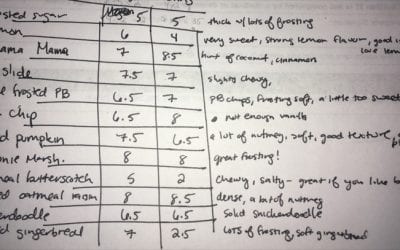 sted sugar 5 5 thick w/ lots of frosting
mon 6 4 very sweet, strong lemon flavor, good i
ama Mama 7 8.5 hint of coconut, cinnamon
slide 7.5 7 slightly chewy,
e frosted PB 6.5 7 PB chips, frosting soft, a little too sweet
chip 6.5 8 not enough vanilla
d pumpkin 7.5 6.5 a lot of nutmeg, soft, good texture,
nie Marsh. 8 8 great frosting!
eal butterscotch 5 2 chewy, salty - great if you like b
ed oatmeal 8 8.5 dense, a lot of nutmeg
erdoodle 6.5 6.5 solid snickerdoodle
d gingerbread 7 2.5 lots of frosting, soft gingerbread